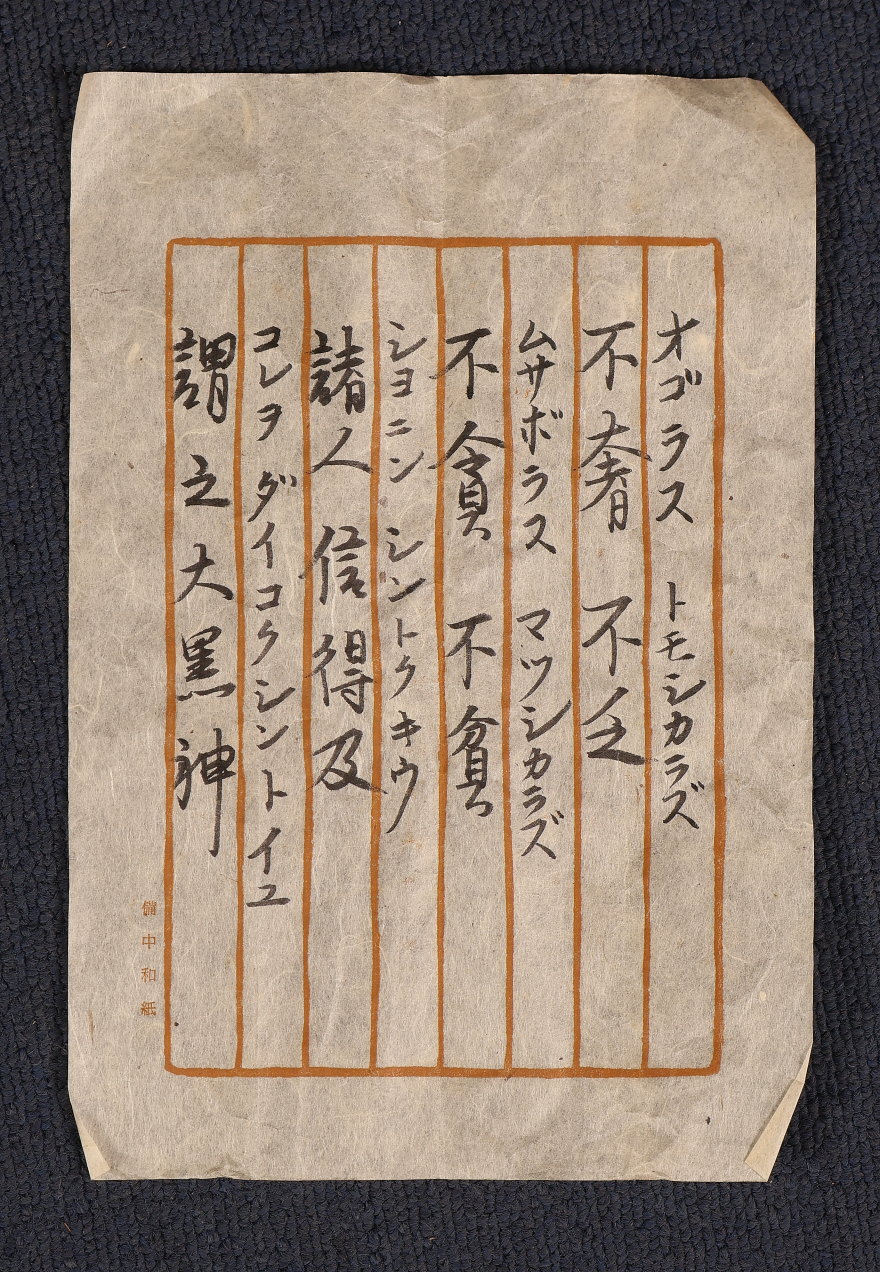 オゴラス トモシカラズ
不奢 不乏
ムサボラス マヅシカラズ
不貪 不貧
シヨニン シントクキウ
諸人信得及
コレヲ ダイコクシント イユ
謂之大黒神
備中和紙